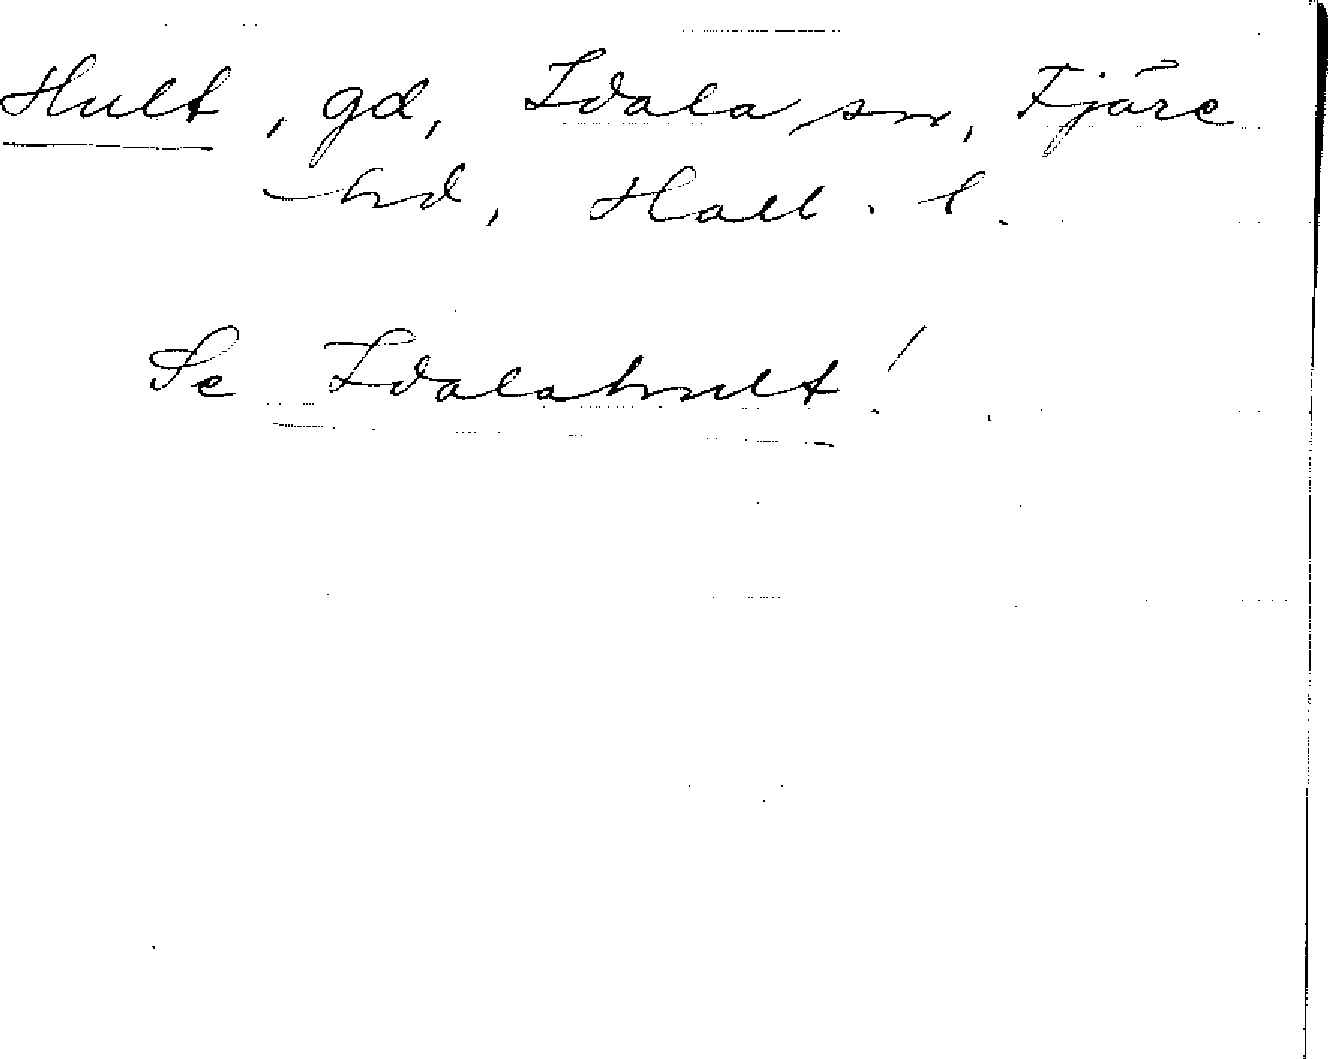 Hult, gd, Idala sn, Fjäre
hd, Hall. l.
Se Idalahult!